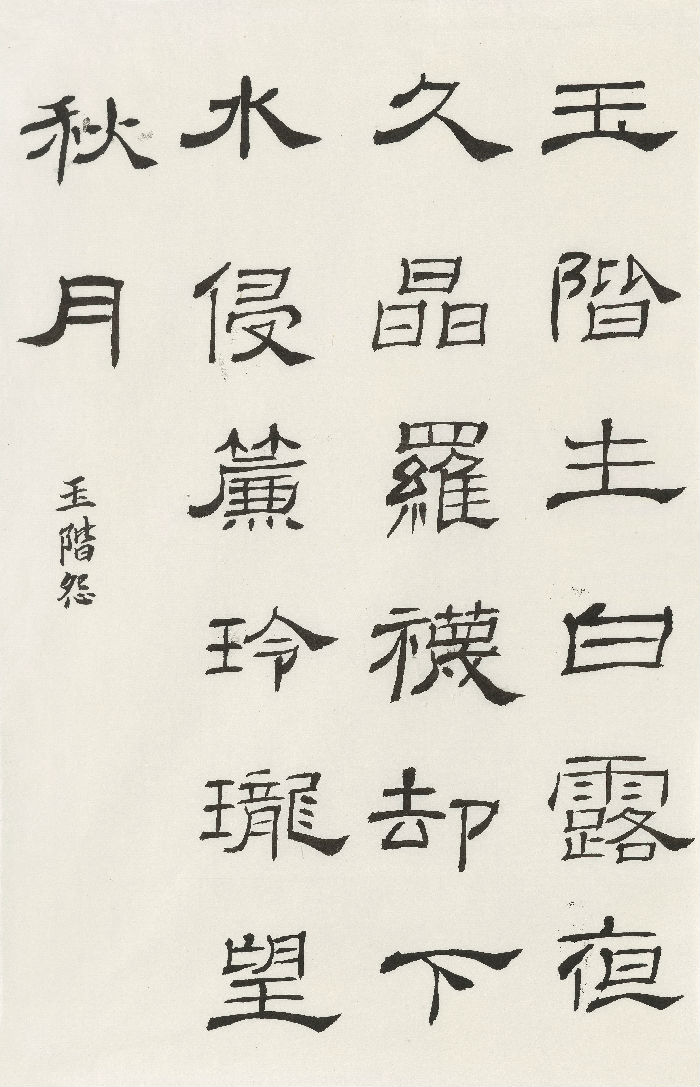 玉階生白露夜
久晶羅襪却下
水侵簾玲瓏望
秋月
玉階怨